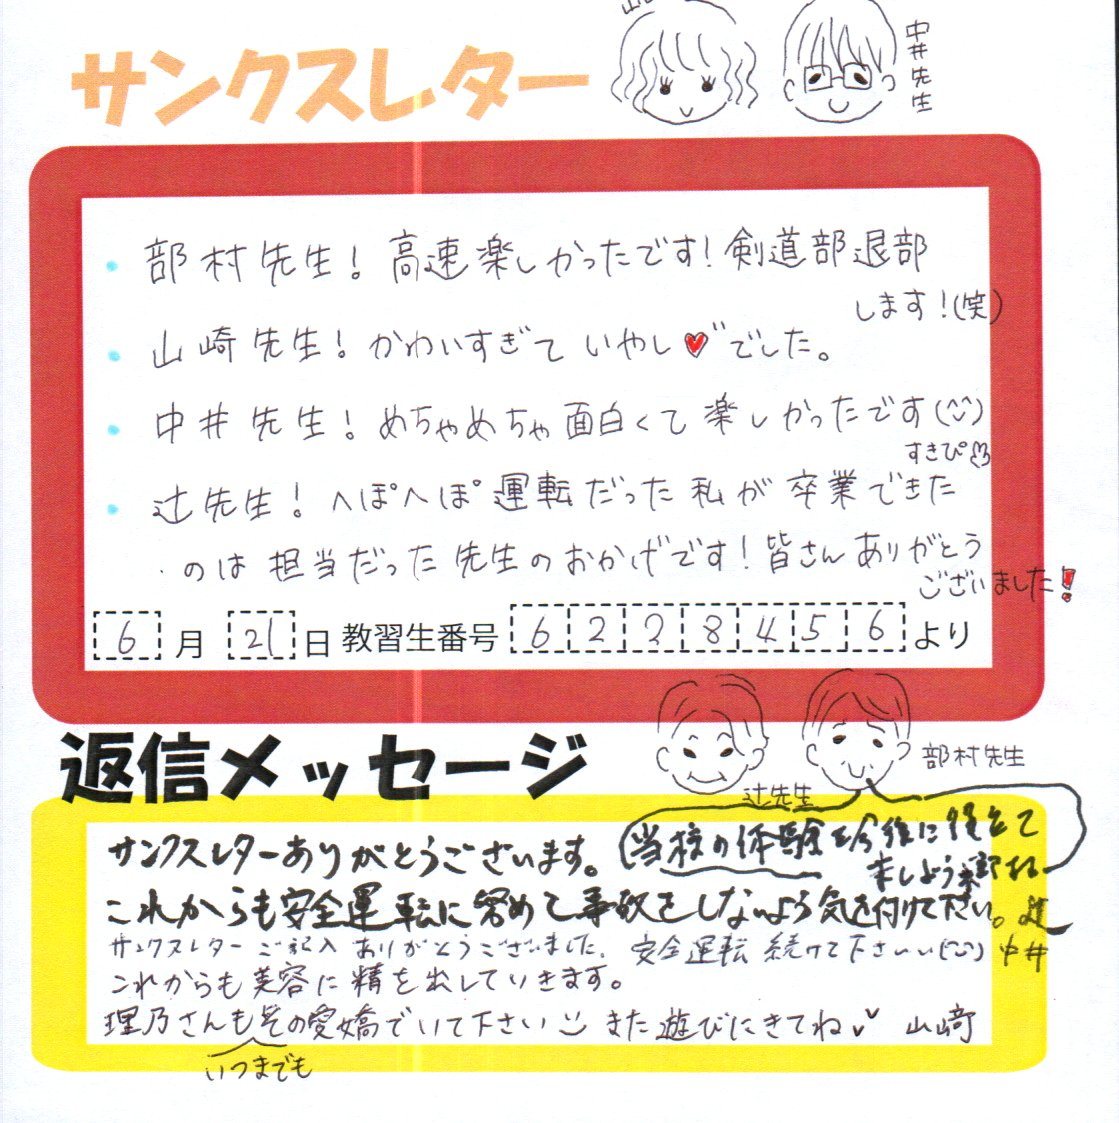 サンクスレター
中井先生
・部村先生！高速楽しかったです！剣道部退部
します！(笑)
・山崎先生！かわいすぎていやし♥でした。
・中井先生！めちゃめちゃ面白くて楽しかったです(^^)
すきぴ♡
・辻先生！へぽへぽ運転だった私が卒業できた
のは担当だった先生のおかげです！皆さんありがとう
ございました！
6月21日教習生番号6238456より
返信メッセージ
部村先生
辻先生
サンクスレターありがとうございます。
当校の体験を今後に役立て
ましょうネ 部村
これからも安全運転に努めて事故をしないよう気を付けて下さい。辻
サンクスレターご記入ありがとうございました。安全運転続けて下さいい(^^) 中井
これからも美容に精を出していきます。
理乃さんもその愛嬌でいて下さい また遊びにきてね 山崎
いつまでも